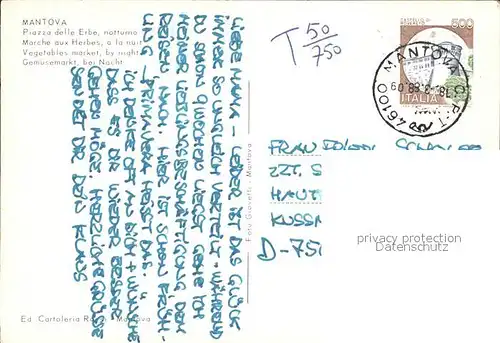 MANTOVA
Piazza delle Erbe, notturno
Marche aux Herbes, à la nuit
Vegetables market, by night
Gemüsemarkt, bei Nacht
T 50/750
500
ITALIA
MANTOVA C.P.-T.
18.-3.88.09
46100
LIEBE MAMA – LEIDER IST DAS GLÜCK
IMMER SO UNGLEICH VERTEILT – WÄHREND
DU SCHON LIEGST GEHE ICH
MEINER LIEBLINGSBESCHÄFTIGUNG DEM
REISEN NACH. HIER IST SCHON FRÜH-
LING – PRIMAVERA HEISST DAS.
ICH DENKE OFT AN DICH + WÜNSCHE
DASS ES DIR WIEDER BESSER
GEHEN MÖGE. HERZLICHE GRÜSSE
SENDET DIR DEIN KLAUS
Foto Giovetti - Mantova
FRAU
ZZT. S
HAUT
KUSSM
D-75
privacy protection
Datenschutz
Ed. Cartoleria Mantova